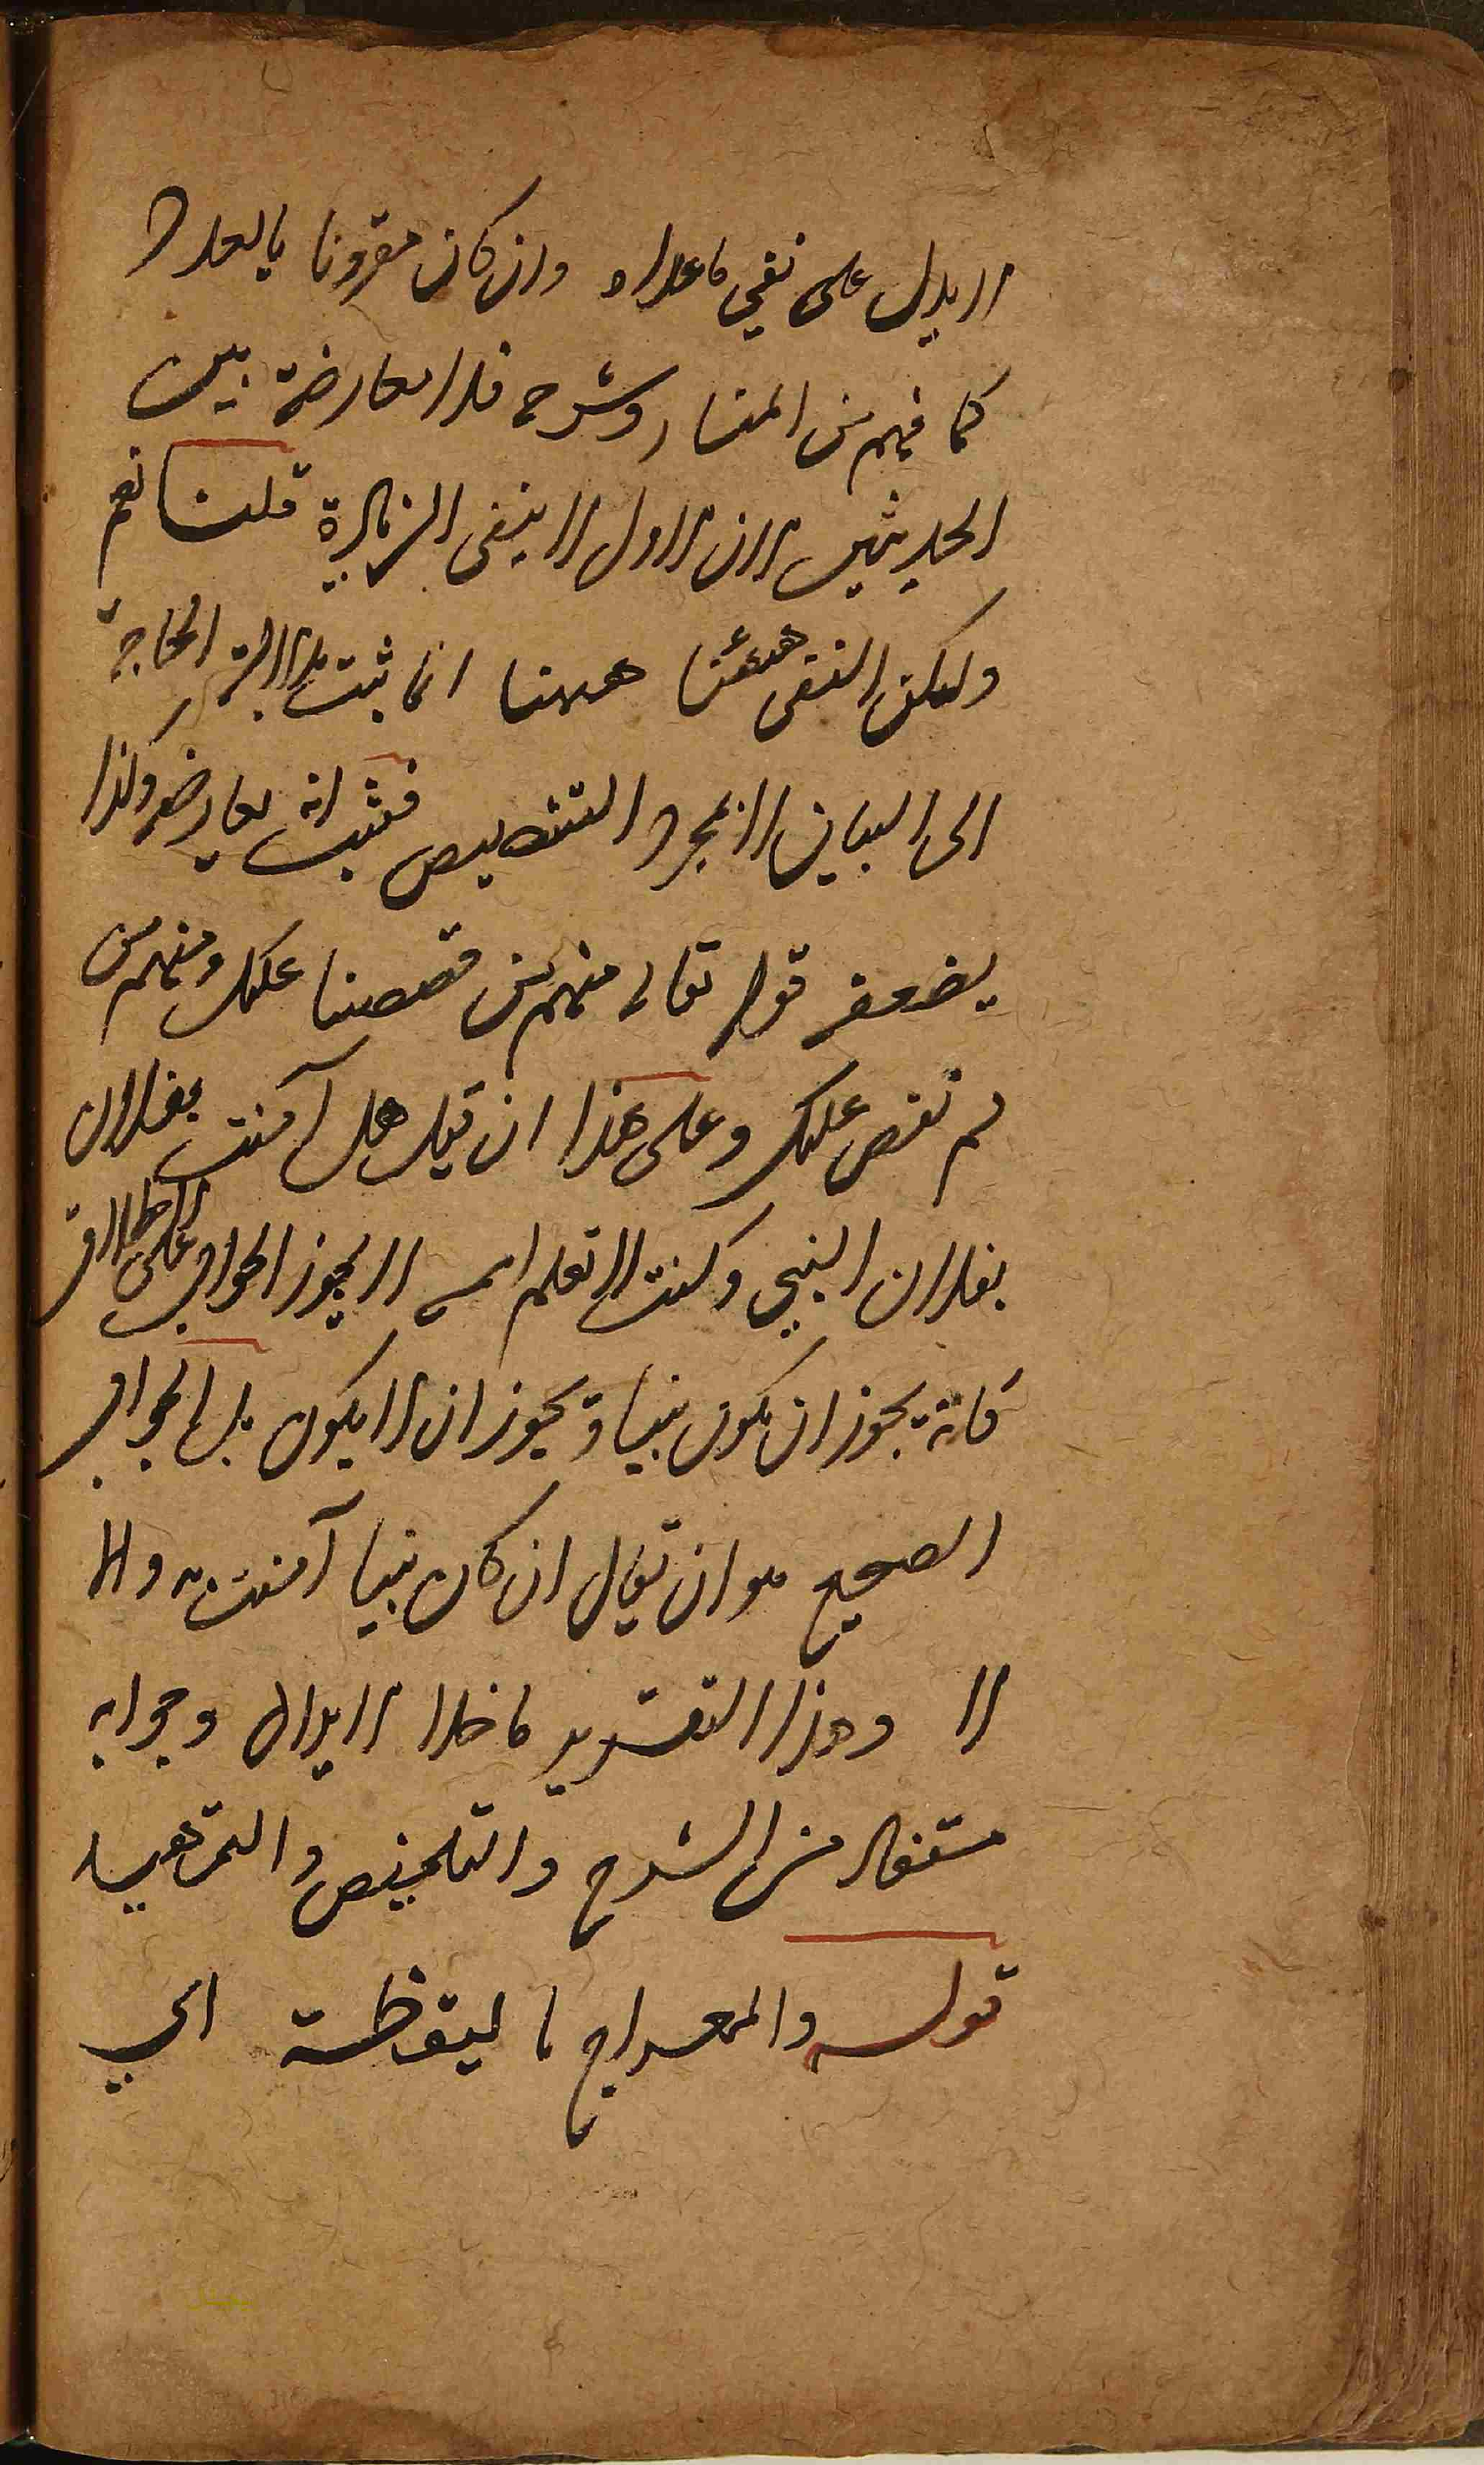 لا يدل على نفي ما عداه وان كان مقرونا بالعدد
كما فهم من المنار وشرحه فلا معارضة بين
الحديثين لان الاول لا ينفى الزيادة قلنا نعم
ولكن النفى ههنا ههنا انما ثبت بدلالة الحاجة
الى البيان لا بمجرد التنصيص فثبت انه يعارضه وكذا
يضعفه قوله تعالى منهم من قصصنا عليك ومنهم من
لم نقص عليك وعلى هذا ان قيل هل آمنت بفلان
بفلان النبي وكنت لا تعلم اسمه لا يجوز الجواب على الاطلاق
فانه يجوز ان يكون نبيا ويجوز ان لا يكون بل الجواب
الصحيح هو ان يقال ان كان نبيا آمنت به والا
لا وهذا التقرير ماخذا لا يدال وجوابه
مستفاد من الشرح والتلخيص والتمهيد
قوله والمعراج باليقظة الي